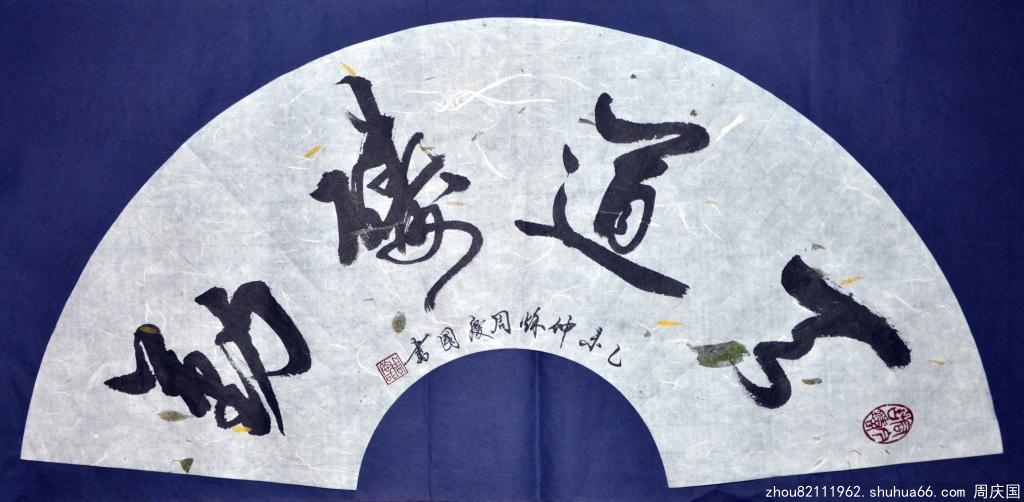 天道酬勤
乙未仲秋周慶國書
zhou82111962.shuhua66.com 周庆国